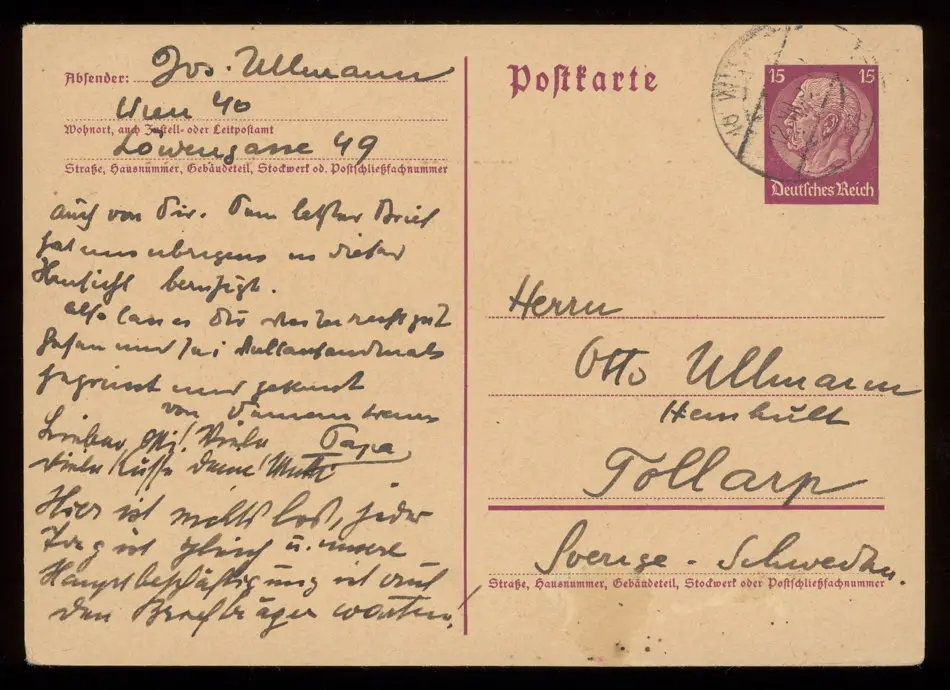 Absender: Jos. Ullmann
Wien 40
Wohnort, auch Zustell- oder Leitpostamt
Löwengasse 49
Straße, Hausnummer, Gebäudeteil, Stockwerk od. Postschließfachnummer
auch von Dir. Dein letzter Brief
hat uns übrigens in dieser
Hinsicht beruhigt.
Also lass es Dir weiter recht gut
gehen und sei
gegrüsst und geküsst
von Deinem treuen
Papa
Lieber Otti! Viele
viele Küsse Deine Mutti
Hier ist nichts los, jeder
Tag ist gleich u. unsere
Hauptbeschäftigung ist auf
den Briefträger warten!
Postkarte
15 15
Deutsches Reich
Herrn
Otto Ullmann
Hemhult
Tollarp
Sverige - Schweden.
Straße, Hausnummer, Gebäudeteil, Stockwerk oder Postschließfachnummer